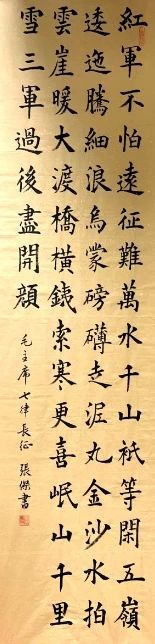 紅軍不怕遠征難萬水千山衹等閑五嶺
逶迤騰細浪烏蒙磅礴走泥丸金沙水拍
雲崖暖大渡橋橫銕索寒更喜岷山千里
雪三軍過後盡開顔
毛主席七律長征 張傑書